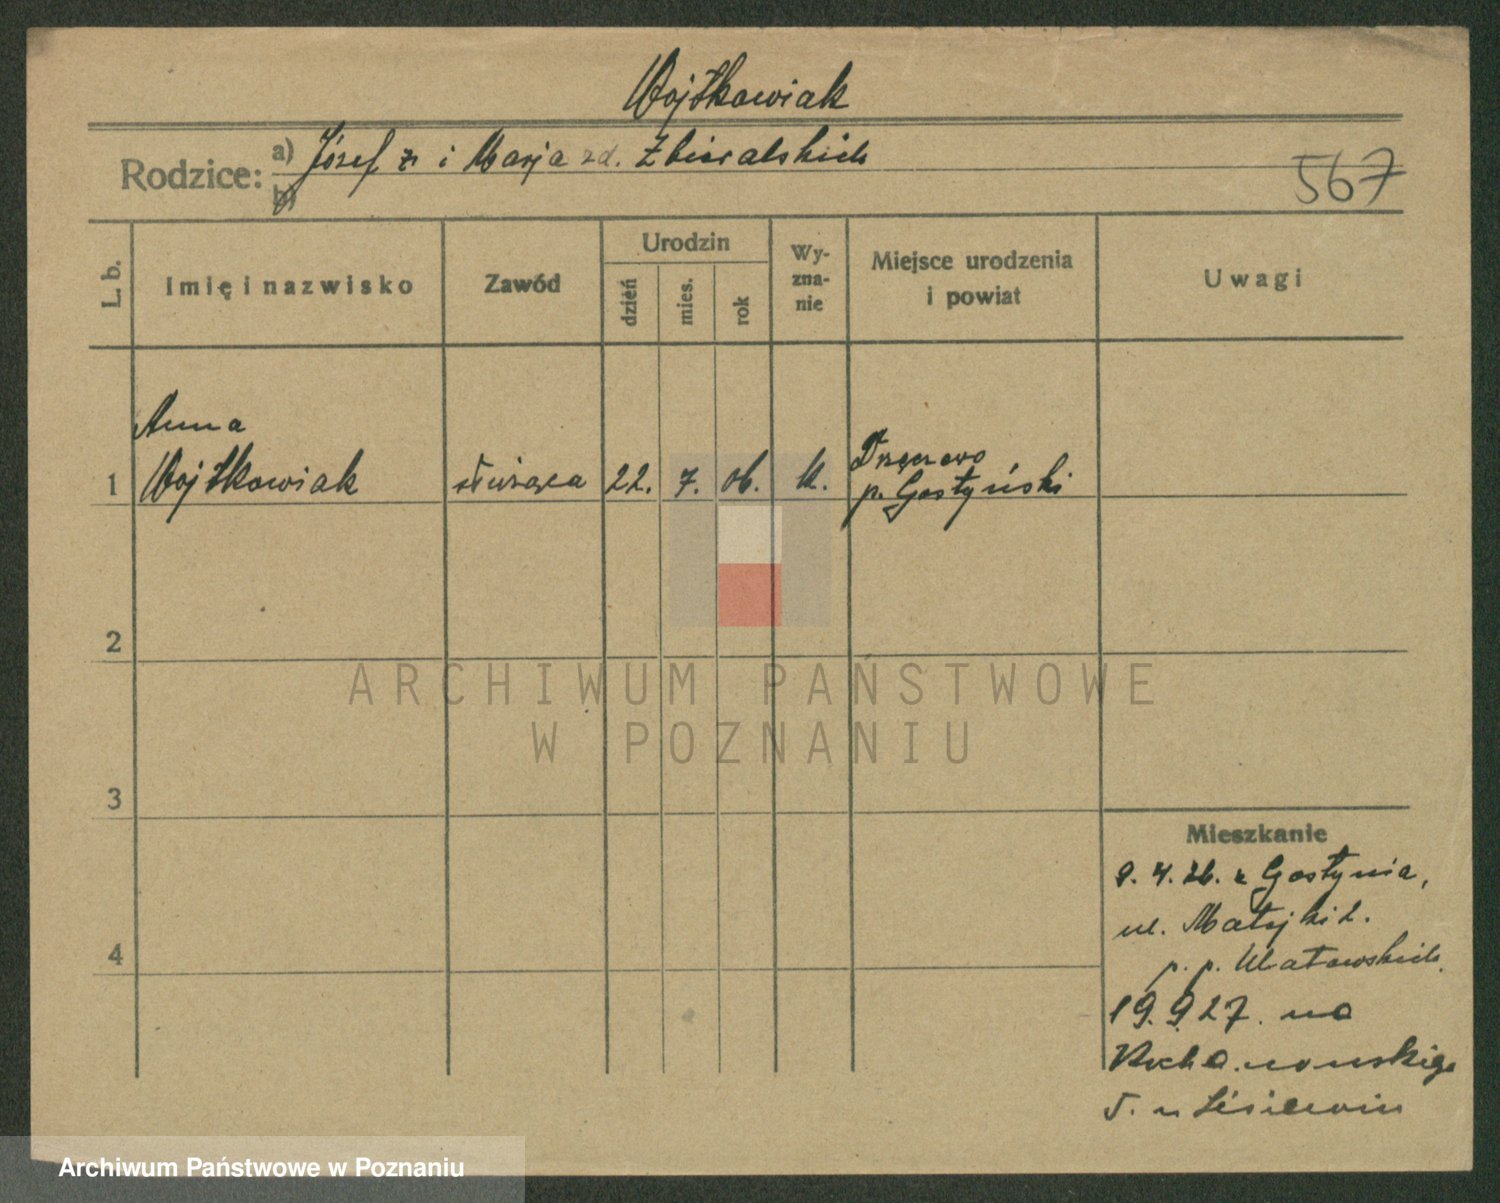 Wojtkowiak
Rodzice: a) Józef r. i Marja zd. Zbieralskich
b)
567
L. b.
Imię i nazwisko
Zawód
Urodzin
dzień
mies.
rok
Wy-
zna-
nie
Miejsce urodzenia
i powiat
Uwagi
Anna
1 Wojtkowiak służąca 22. 7. 06. k. Drzęczewo
p. Gostyński
2
3
4
Mieszkanie
9. 4. 26. z Gostynia,
ul. Matejki 2.
p. p.
19. 9. 27. na
Kochanowskiego
5. u
ARCHIWUM PAŃSTWOWE
W POZNANIU
Archiwum Państwowe w Poznaniu